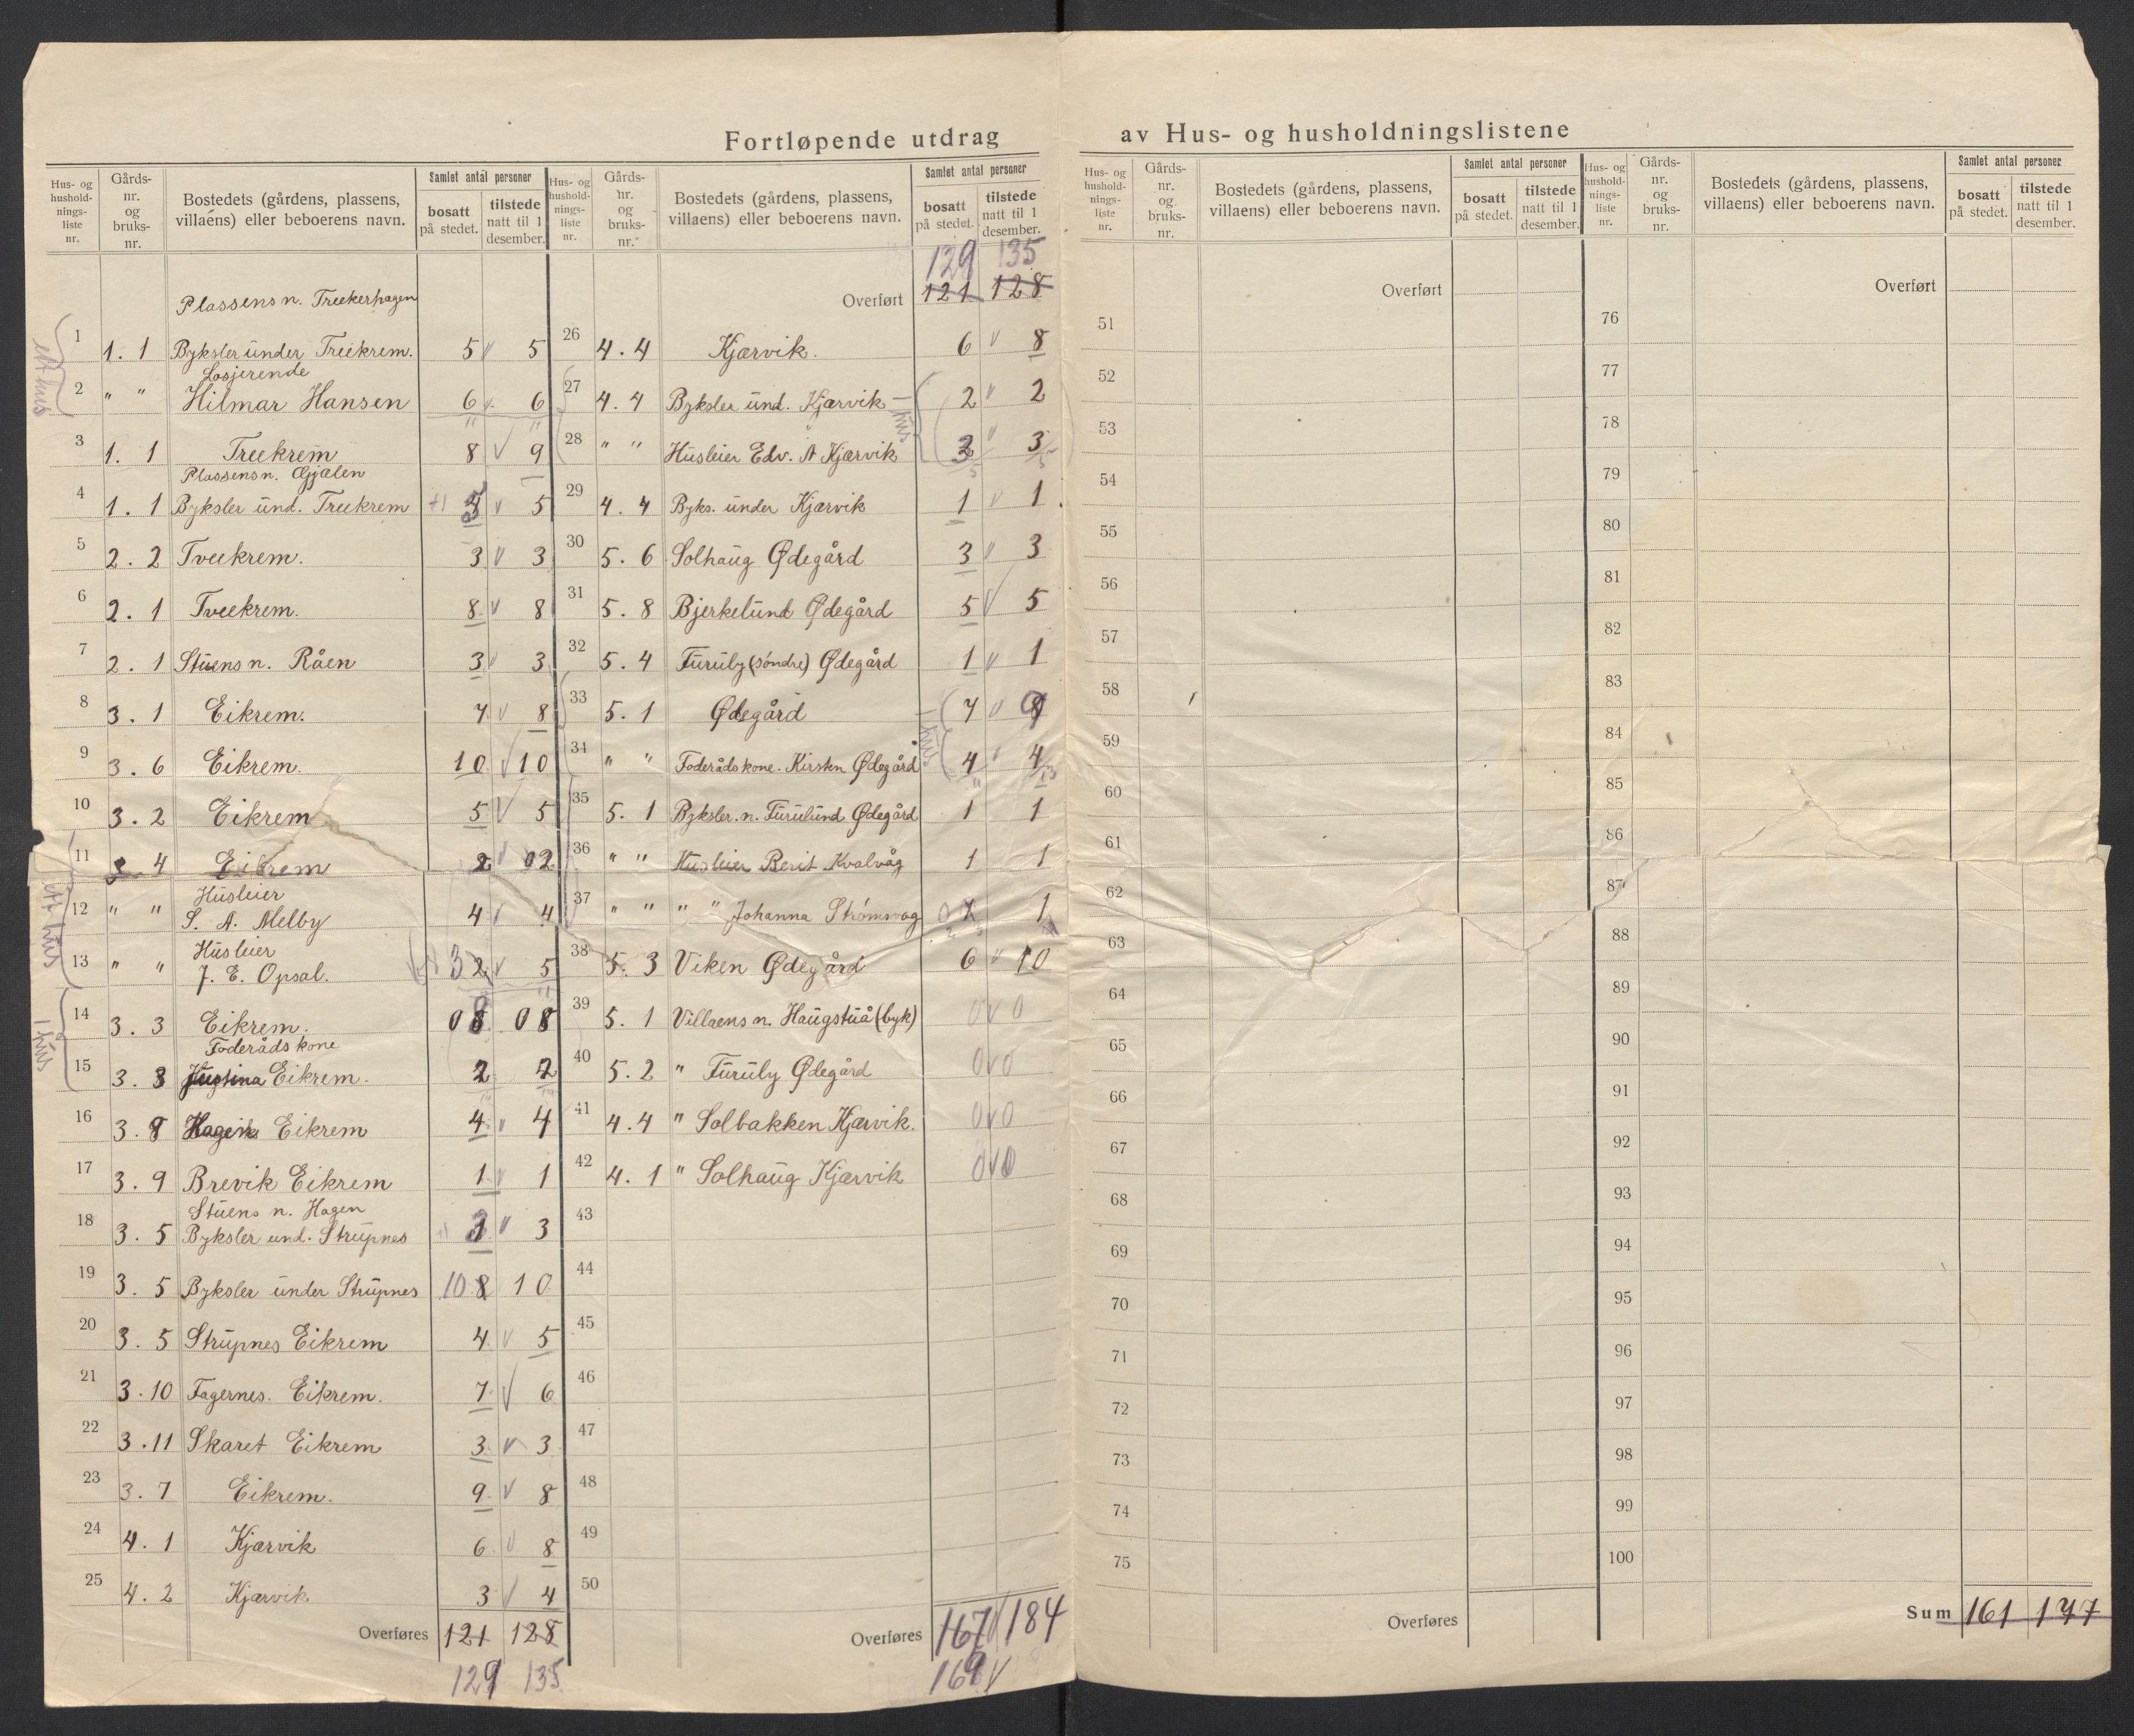 Fortløpende utdrag av Hus- og husholdningslistene
Hus- og husholdnings-liste nr. | Gårds-nr. og bruks-nr. | Bostedets (gårdens, plassens, villaens) eller beboerens navn. | Samlet antal personer | bosatt på stedet. | tilstede natt til 1 desember.
Plassens n. Treekerhagen
1 | 1. 1 | Byksler under Treekrem. | 5 v 5
Losjerende
2 | " " | Hilmar Hansen | 6 v 6
ett hus
3 | 1. 1 | Treekrem | 8 v 9
Plassens n. Gjølen
4 | 1. 1 | Byksler und. Treekrem | v 5
5 | 2. 2 | Tveekrem. | 3 v 3
6 | 2. 1 | Tveekrem. | 8 v 8
7 | 2. 1 | Stuens n. Råen | 3 v 3
8 | 3. 1 | Eikrem. | 7 v 8
9 | 3. 6 | Eikrem. | 10 v 10
10 | 3. 2 | Eikrem | 5 v 5
11 | 3. 4 | Eikrem | 2 v 02
Husleier
12 | " " | S. A. Melby | 4 v 4
Husleier
13 | " " | J. E. Opsal. | 3 2 v 5
14 | 3. 3 | Eikrem. | 08 08
Foderådskone
15 | 3. 3 | Justina Eikrem. | 2 2
1 hus
16 | 3. 8 | Hagen Eikrem | 4 v 4
17 | 3. 9 | Brevik Eikrem | 1 v 1
Stuens n. Hagen
18 | 3. 5 | Byksler und. Strupnes | v 3
19 | 3. 5 | Byksler under Strupnes | 10 8 10
20 | 3. 5 | Strupnes Eikrem | 4 v 5
21 | 3. 10 | Fagernes. Eikrem. | 7 v 6
22 | 3. 11 | Skaret Eikrem | 3 v 3
23 | 3. 7 | Eikrem. | 9 v 8
24 | 4. 1 | Kjørvik | 6 v 8
25 | 4. 2 | Kjørvik | 3 v 4
Overføres 121 128
129 135
Hus- og husholdnings-liste nr. | Gårds-nr. og bruks-nr. | Bostedets (gårdens, plassens, villaens) eller beboerens navn. | Samlet antal personer | bosatt på stedet. | tilstede natt til 1 desember.
129 135
Overført 121 128
26 | 4. 4 | Kjørvik. | 6 v 8
27 | 4. 4 | Byksler und. Kjørvik | 2 v 2
28 | " " | Husleier Edv. A Kjørvik | 3 3
29 | 4. 4 | Byks. under Kjørvik | 1 v 1
30 | 5. 6 | Solhaug Ødegård | 3 v 3
31 | 5. 8 | Bjerkelund Ødegård | 5 v 5
32 | 5. 4 | Furuly (søndre) Ødegård | 1 v 1
33 | 5. 1 | Ødegård | 7 v 9
34 | " " | Foderådskone. Kirsten Ødegård | 4 4
35 | 5. 1 | Byksler. n. Furulund Ødegård | 1 1
36 | " " | Husleier Berit Kvalvåg | 1 1
37 | " " | " " Johanna Strømsvåg | 1
38 | 5. 3 | Viken Ødegård | 6 v 10
39 | 5. 1 | Villaens n. Haugstuå (byk) | 0 v 0
40 | 5. 2 | " Furuly Ødegård | 0 v 0
41 | 4. 4 | " Solbakken Kjørvik. | 0 v 0
42 | 4. 1 | " Solhaug Kjørvik | 0 v 0
43
44
45
46
47
48
49
50
Overføres 167 184
169 v
Hus- og husholdnings-liste nr. | Gårds-nr. og bruks-nr. | Bostedets (gårdens, plassens, villaens) eller beboerens navn. | Samlet antal personer | bosatt på stedet. | tilstede natt til 1 desember.
Overført
51
52
53
54
55
56
57
58
59
60
61
62
63
64
65
66
67
68
69
70
71
72
73
74
75
Overføres
Hus- og husholdnings-liste nr. | Gårds-nr. og bruks-nr. | Bostedets (gårdens, plassens, villaens) eller beboerens navn. | Samlet antal personer | bosatt på stedet. | tilstede natt til 1 desember.
Overført
76
77
78
79
80
81
82
83
84
85
86
87
88
89
90
91
92
93
94
95
96
97
98
99
100
Sum 161 177